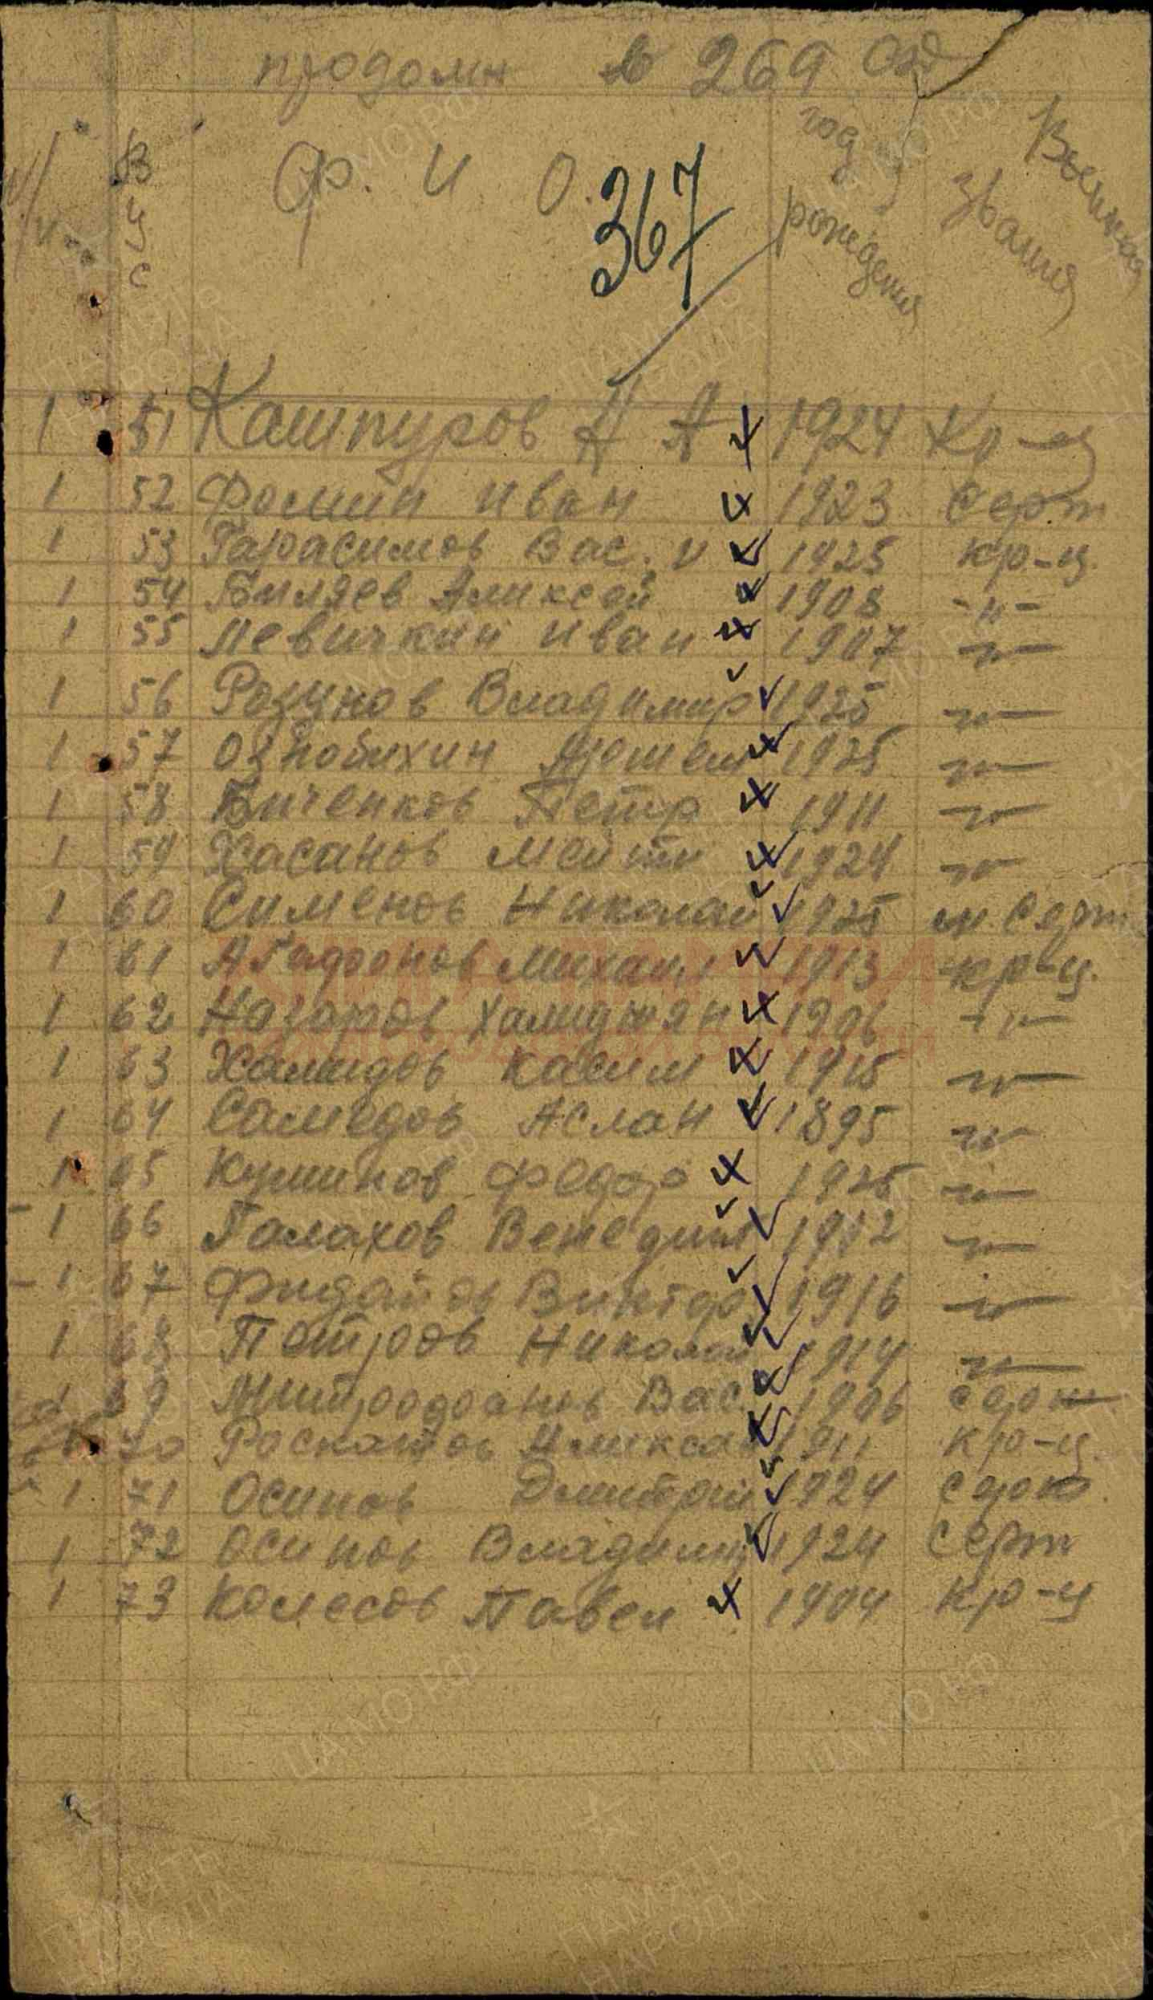 продолж в 269 сд
№/п В У С Ф. И О. год рождения Военная звания
367
1 51 Кашпуров А А 1924 Кр-ц
1 52 Фомин Иван 1923 Серт
1 53 Гарасимов Вас. И 1925 кр-ц.
1 54 Биляев Аликсей 1908 -"-
1 55 Левичкин Иван 1907 -"-
1 56 Розунов Владимир 1925 -"-
1 57 Ознобихин 1925 -"-
1 58 Биченков Петр 1911 -"-
1 59 Хасанов 1924 -"-
1 60 Сименов Николай 1925 м. Серт
1 61 Агафонов Михаил 1913 кр-ц.
1 62 Назаров Халиджян 1906 -"-
1 63 Хамидов Касим 1915 -"-
1 64 Самедов Аслан 1895 -"-
1 65 Федор 1925 -"-
1 66 Галахов Венедикт 1912 -"-
1 67 Виктор 1916 -"-
1 68 Петров Николай 1914 -"-
1 69 Вас. 1906
1 70 Роскатов 1911 кр-ц.
1 71 Осипов Дмитрий 1924
1 72 Осипов Владимир 1924 Серт
1 73 Колесов Павел 1904 кр-ц